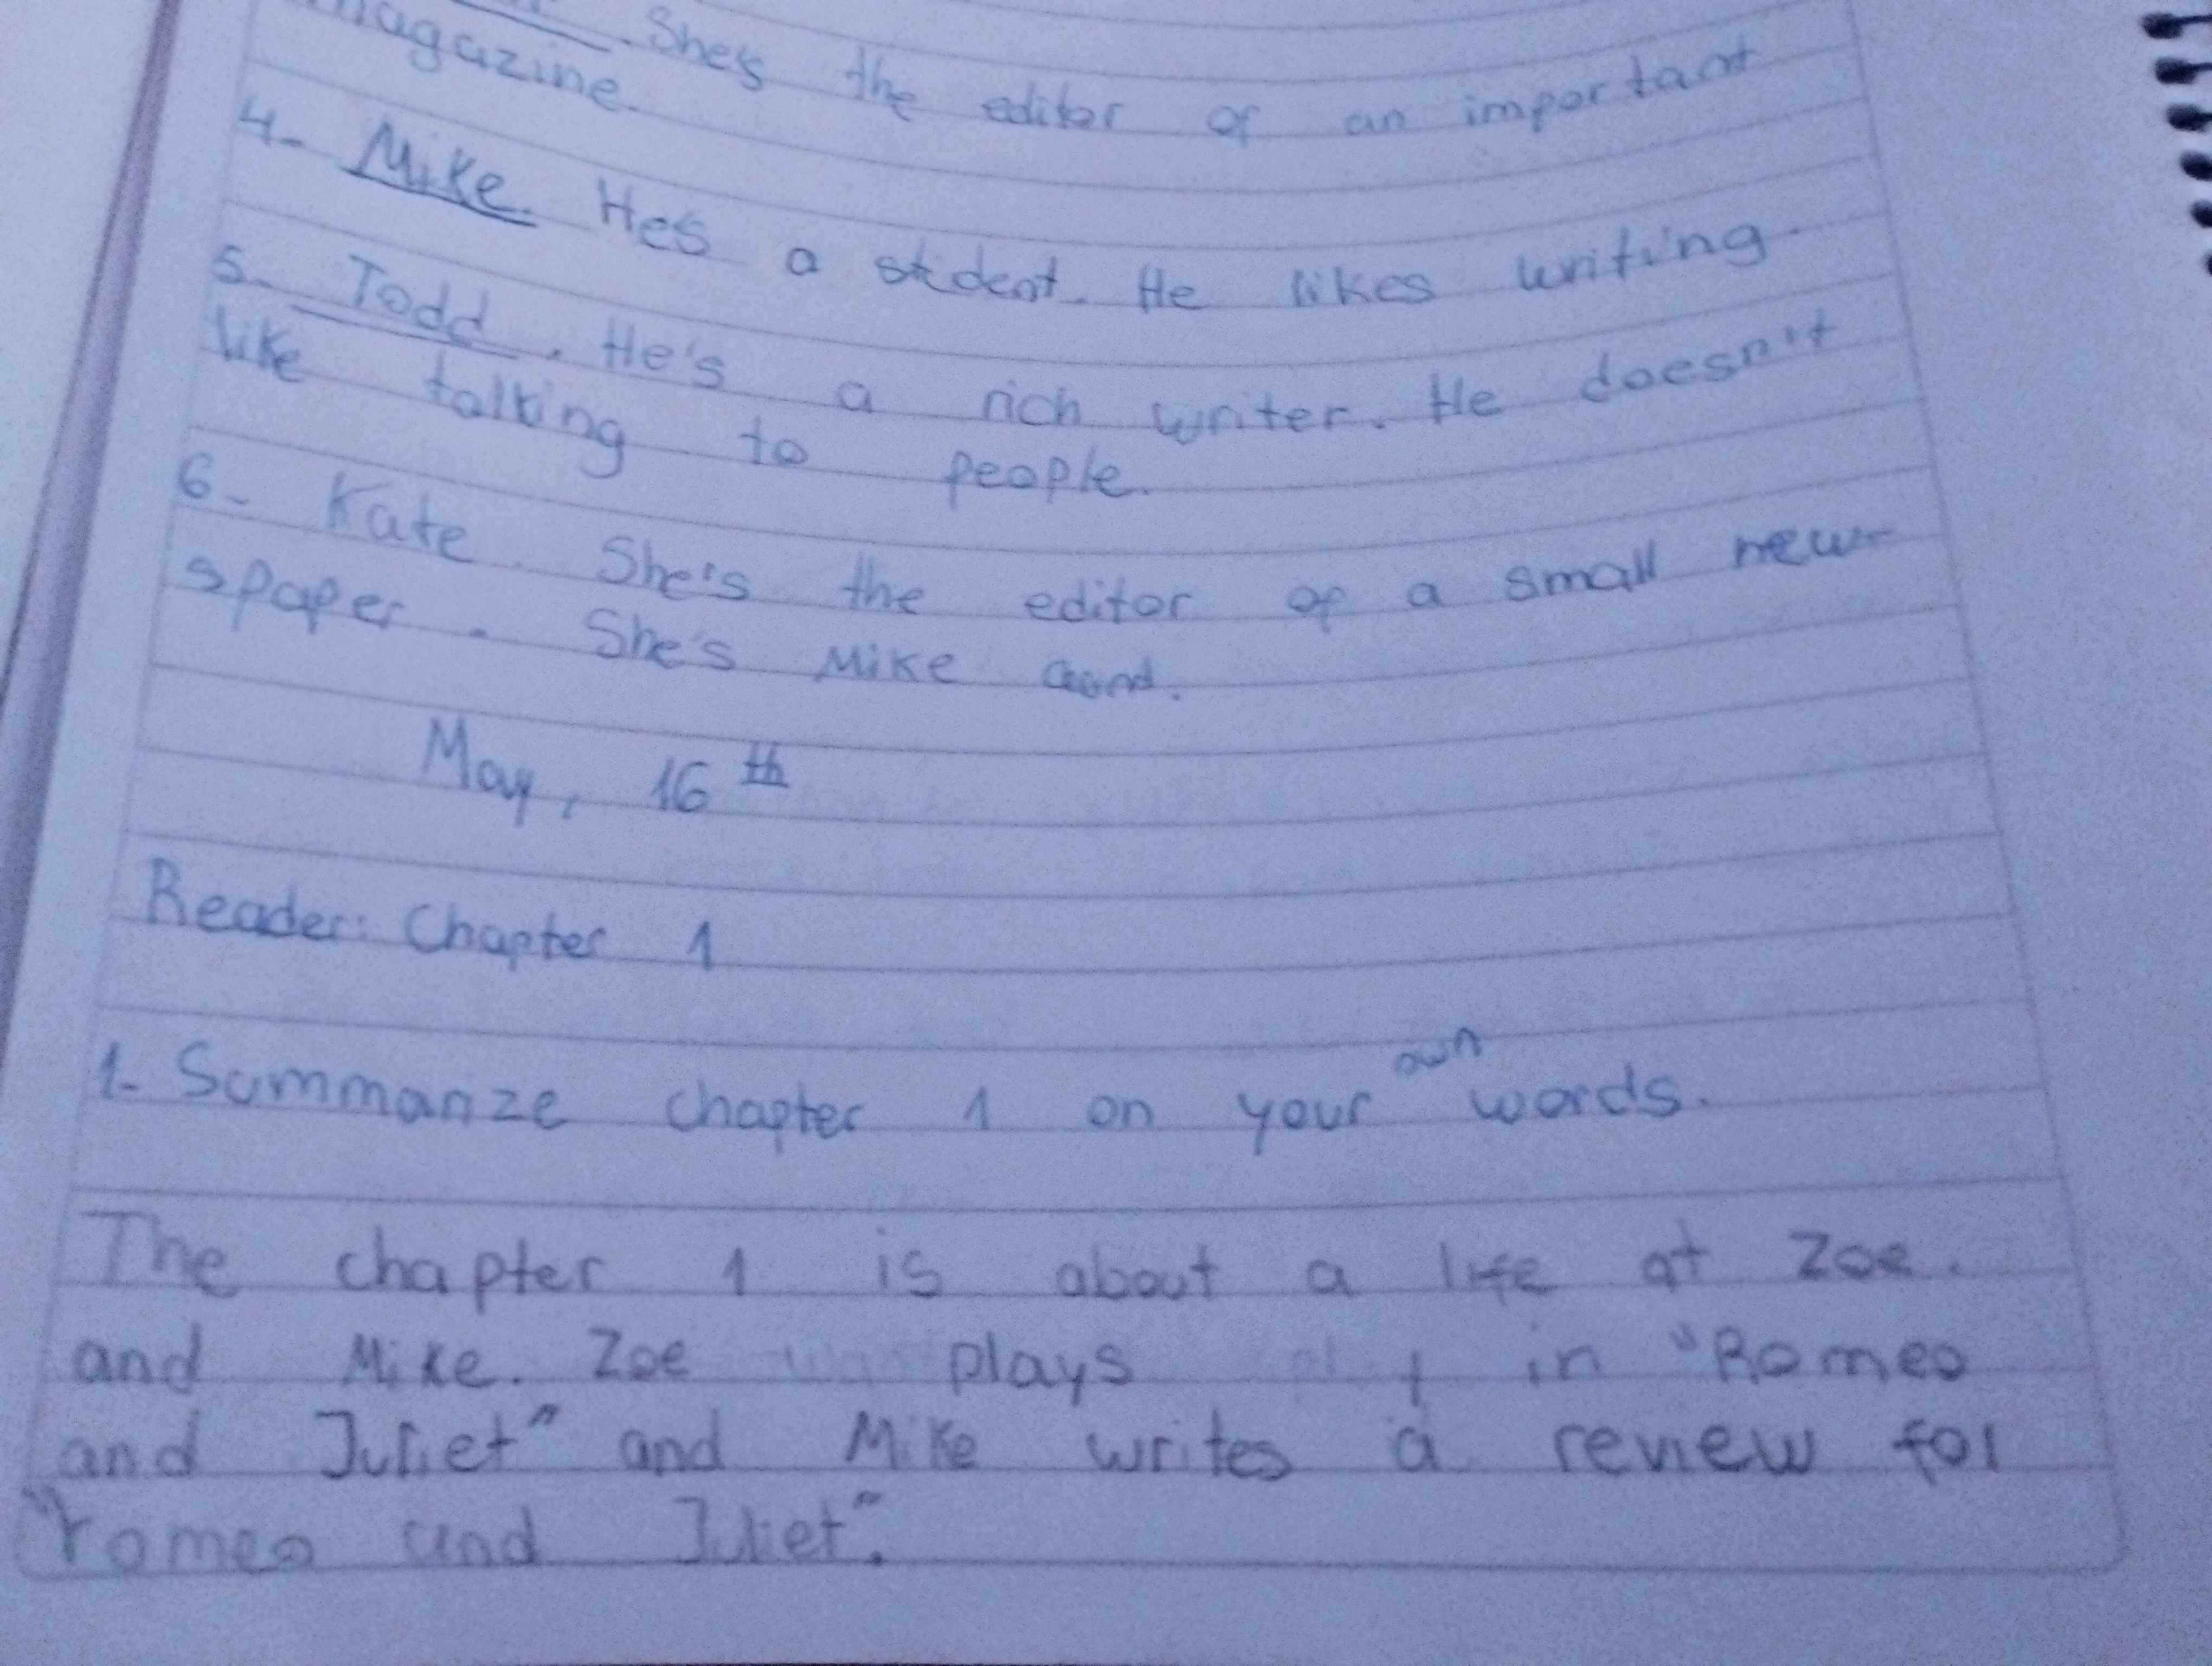 She's the editor of an important
magazine.
4- Mike. He's a student. He likes writing.
5- Todd. He's a rich writer. He doesn't
like talking to people.
6- Kate. She's the editor of a small new-
spaper. She's Mike
May, 16th
Reader: Chapter 1
1- Summarize chapter 1 on your own words.
The chapter 1 is about a life at Zoe.
and Mike. Zoe plays in "Romeo
and Juliet" and Mike writes a review for
"romeo and Juliet".